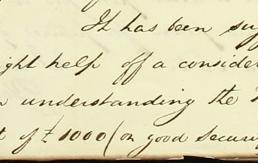 It has been su
ight help off a consider
understanding the
of £1000 (on good securi